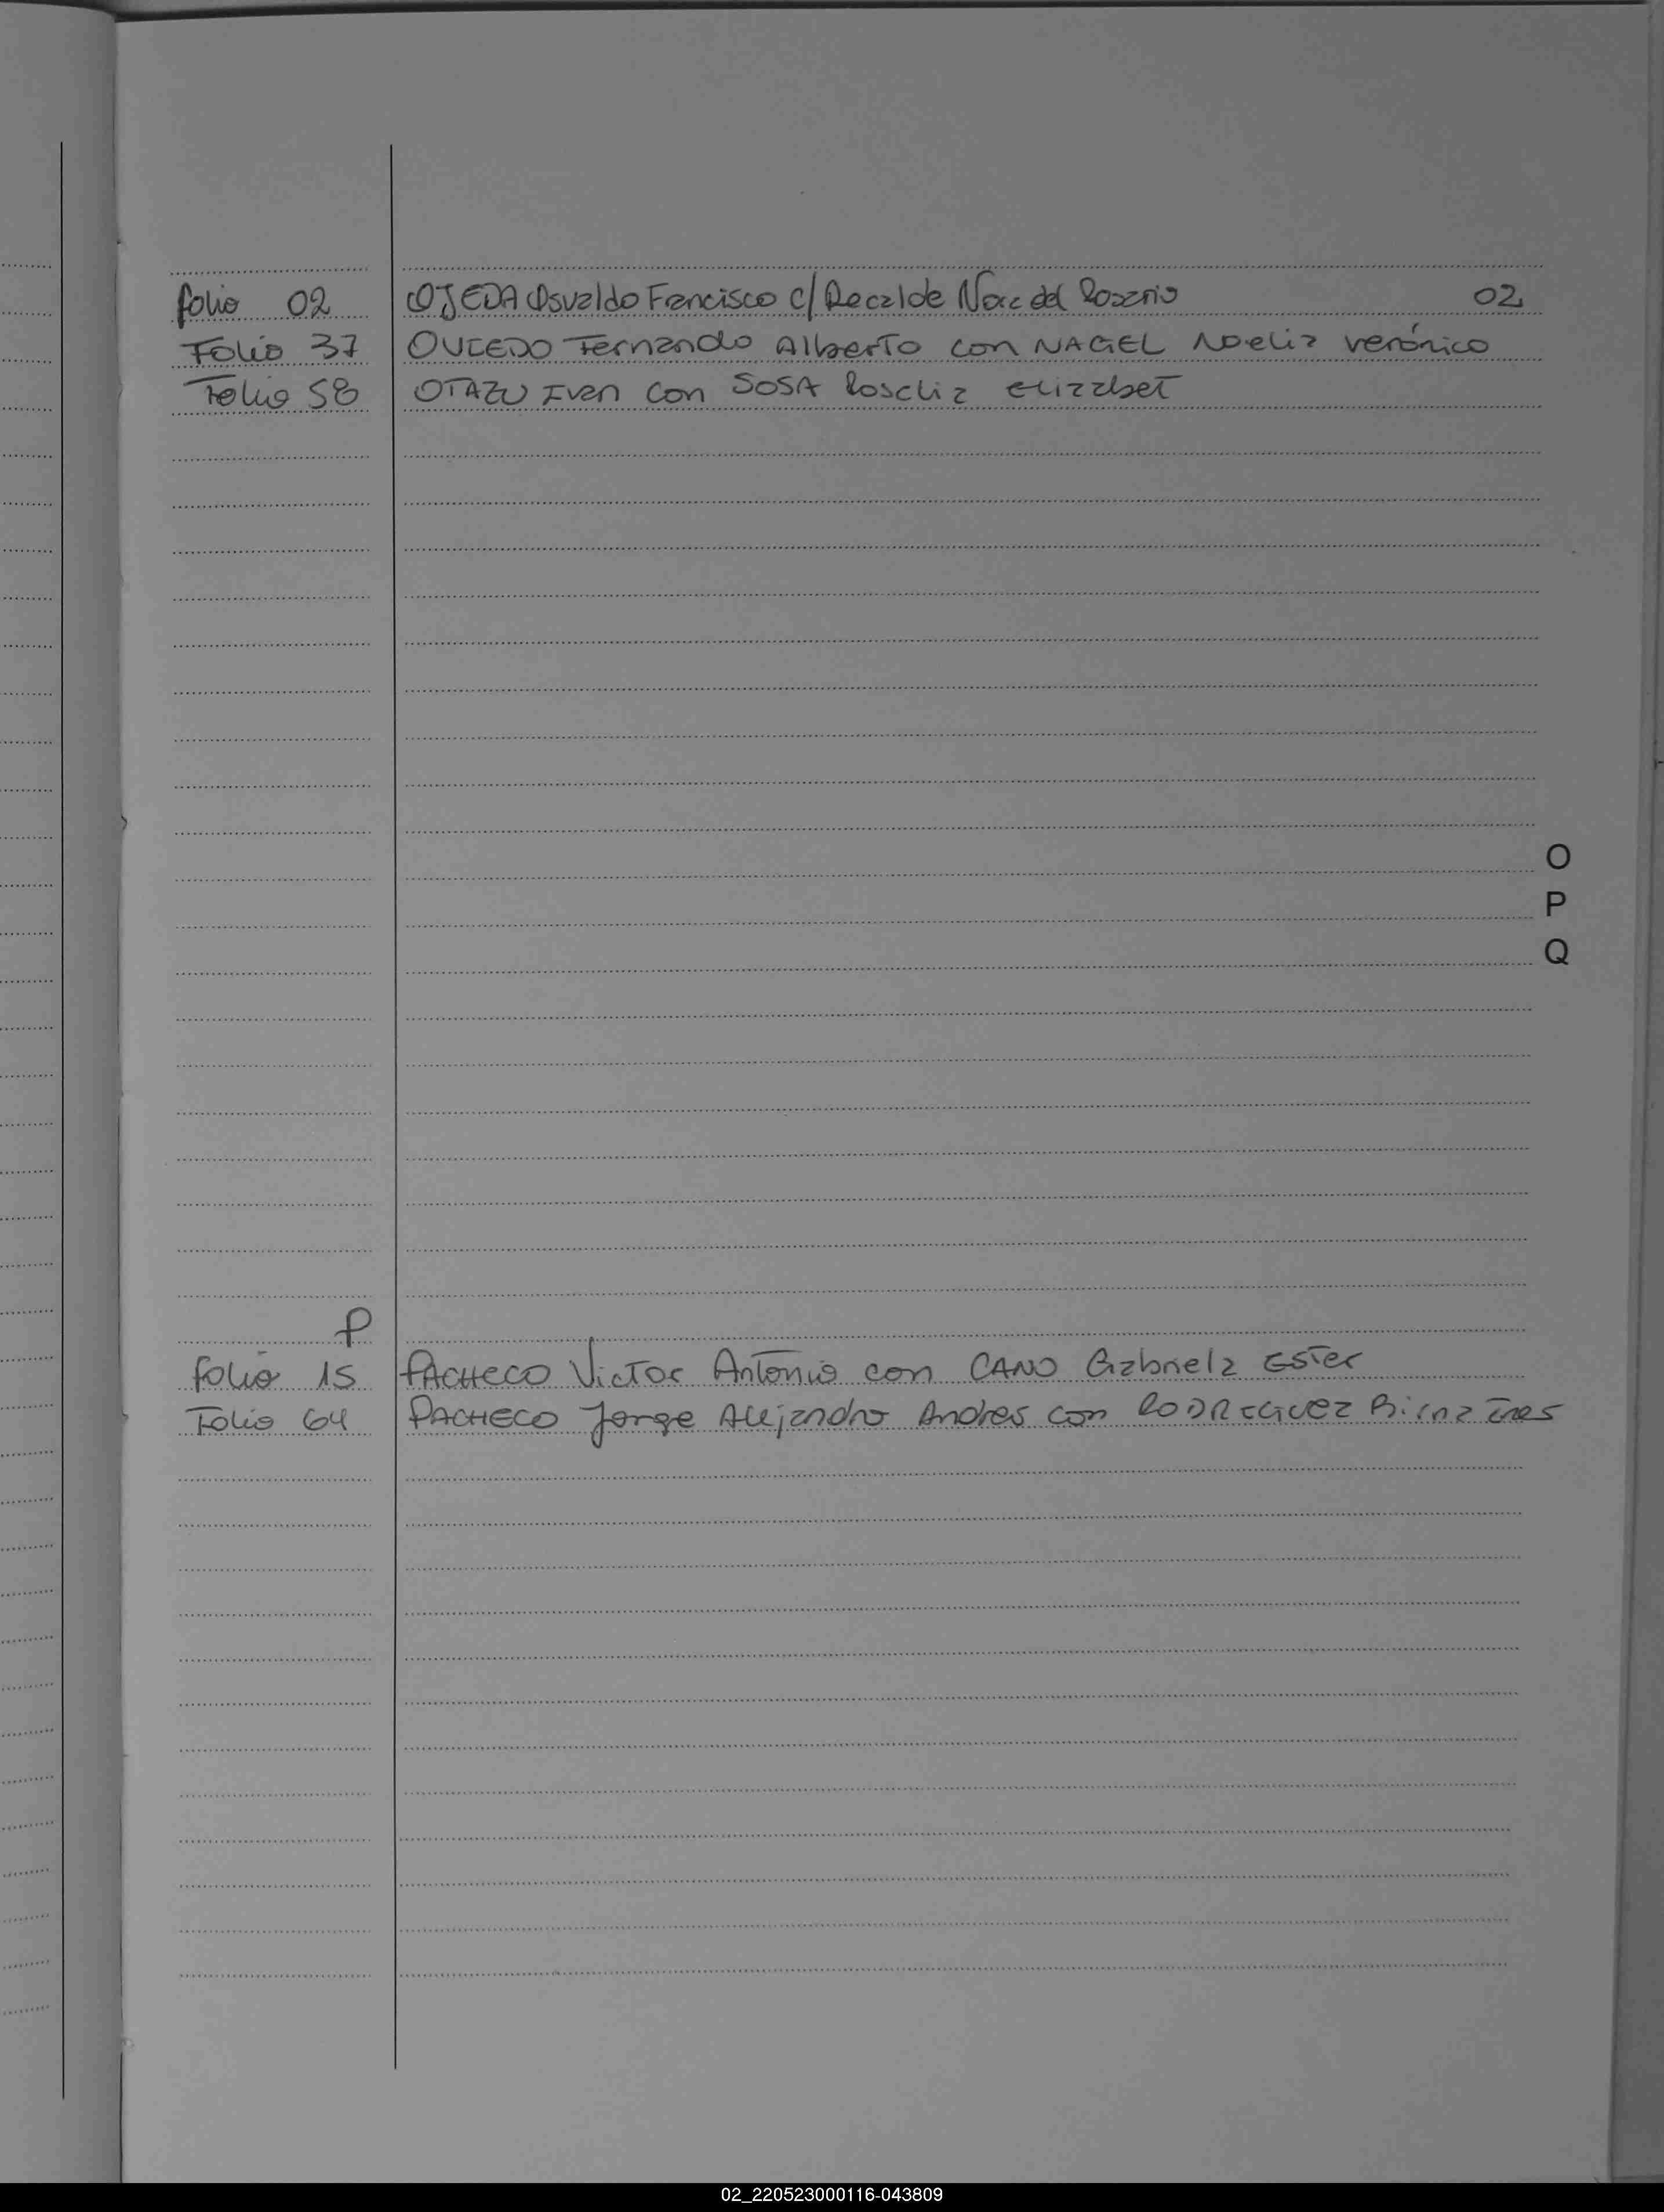 folio 02 OJEDA Osvaldo Francisco c/ Recalde Nora del Rosario 02
Folio 37 OVIEDO Fernando Alberto con NAGEL Noelia verónica
Folio 58 OTAZU Ivan con SOSA Roselia elizabet
O
P
Q
P
folio 15 PACHECO Victor Antonio con CANO Gabriela Ester
Folio 64 PACHECO Jorge Alejandro Andres con RODRIGUEZ Ines
02_220523000116-043809